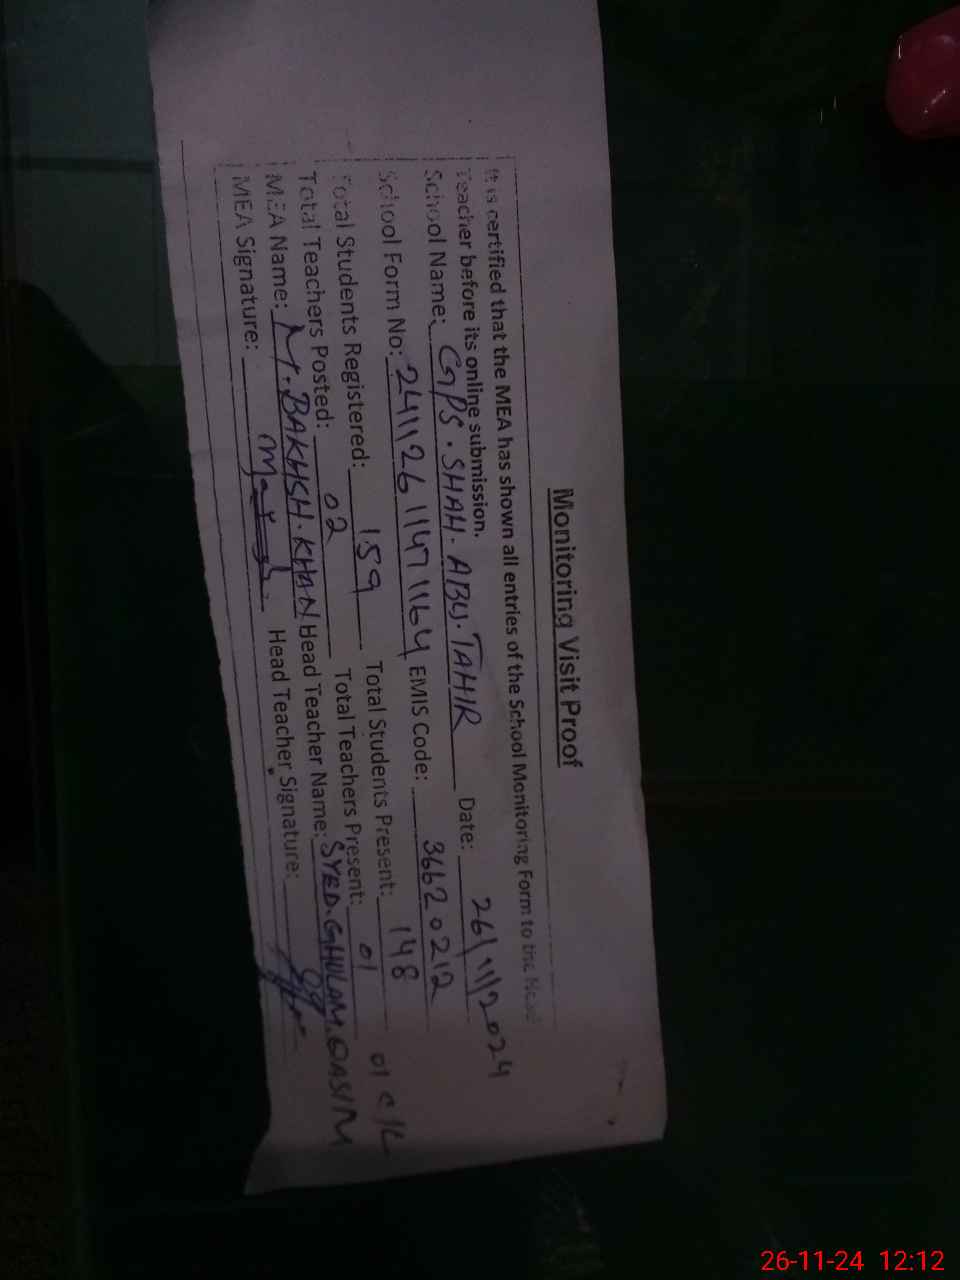 Monitoring Visit Proof
It is certified that the MEA has shown all entries of the School Monitoring Form to the Head
Teacher before its online submission.
School Name: GPS. SHAH. ABU. TAHIR Date: 26/11/2024
School Form No: 24112611471164 EMIS Code: 36620212
Total Students Registered: 159 Total Students Present: 148
Total Teachers Posted: 02 Total Teachers Present: 01 01 C/L
MEA Name: M. BAKHSH. KHAN Head Teacher Name: SYED. GHULAM. QASIM
MEA Signature: Head Teacher Signature:
26-11-24 12:12